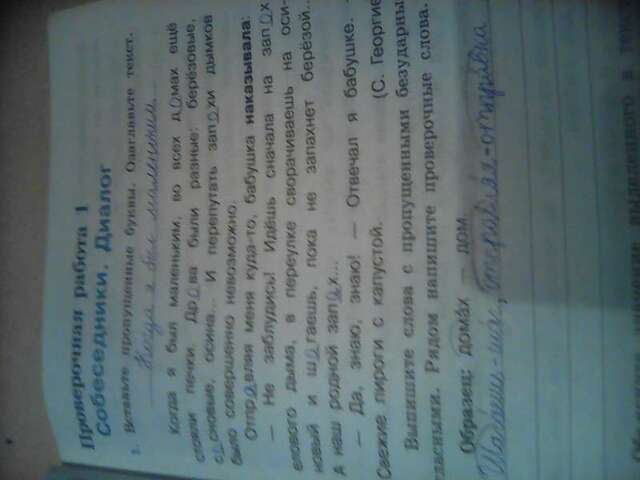 Проверочная работа 1
Собеседники. Диалог
1. Вставьте пропущенные буквы. Озаглавьте текст.
Когда я был маленьким
Когда я был маленьким, во всех домах ещё
стояли печки. Дрова были разные: берёзовые,
сосновые, осина... И перепутать запахи дымков
было совершенно невозможно.
Отправляя меня куда-то, бабушка наказывала:
— Не заблудись! Идёшь сначала на запах
елового дыма, в переулке сворачиваешь на оси-
новый и шагаешь, пока не запахнет берёзой...
А наш родной запах...
— Да, знаю, знаю! — Отвечал я бабушке. —
Свежие пироги с капустой.
(С. Георгие
Выпишите слова с пропущенными безударны
гласными. Рядом напишите проверочные слова.
Образец: домах — дом.